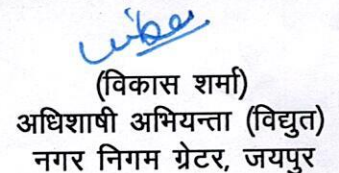 (विकास शर्मा)
अधिशाषी अभियन्ता (विद्युत)
नगर निगम ग्रेटर, जयपुर